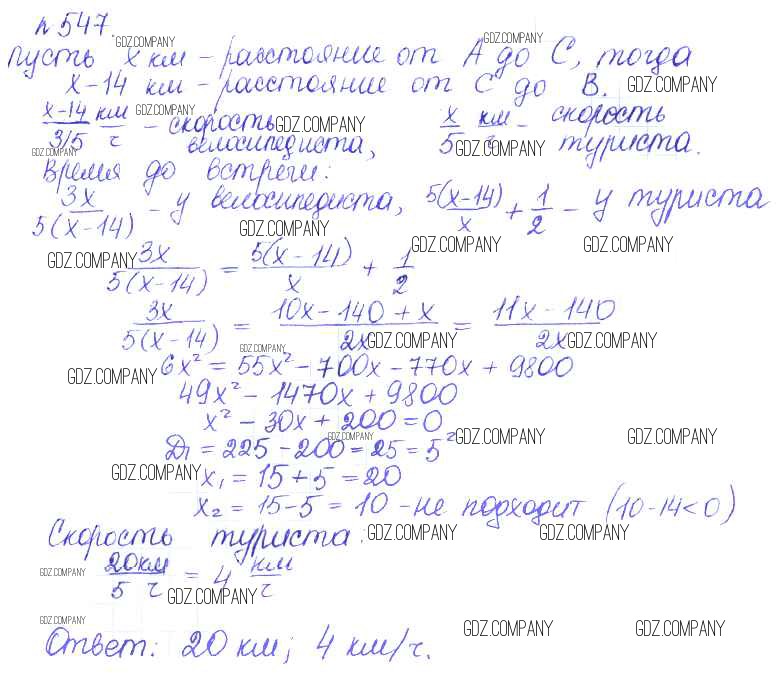 № 547
GDZ.COMPANY GDZ.COMPANY
пусть x км – расстояние от А до С, тогда
x-14 км – расстояние от С до В. GDZ.COMPANY
x-14/3/5 км/ч – скорость велосипедиста, x/5 км/ч – скорость туриста.
GDZ.COMPANY GDZ.COMPANY GDZ.COMPANY GDZ.COMPANY
Время до встречи:
3x/5(x-14) – у велосипедиста, 5(x-14)/x + 1/2 – у туриста
GDZ.COMPANY GDZ.COMPANY GDZ.COMPANY
GDZ.COMPANY 3x/5(x-14) = 5(x-14)/x + 1/2
3x/5(x-14) = 10x-140+x/2x = 11x-140/2x
GDZ.COMPANY GDZ.COMPANY GDZ.COMPANY
GDZ.COMPANY 6x² = 55x² - 700x - 770x + 9800
49x² - 1470x + 9800
x² - 30x + 200 = 0
GDZ.COMPANY GDZ.COMPANY GDZ.COMPANY
D₁ = 225 - 200 = 25 = 5²
GDZ.COMPANY x₁ = 15+5 = 20
x₂ = 15-5 = 10 - не подходит (10-14<0)
Скорость туриста: GDZ.COMPANY GDZ.COMPANY
GDZ.COMPANY 20км/5 ч = 4 км/ч
GDZ.COMPANY
GDZ.COMPANY GDZ.COMPANY GDZ.COMPANY
Ответ: 20 км; 4 км/ч.